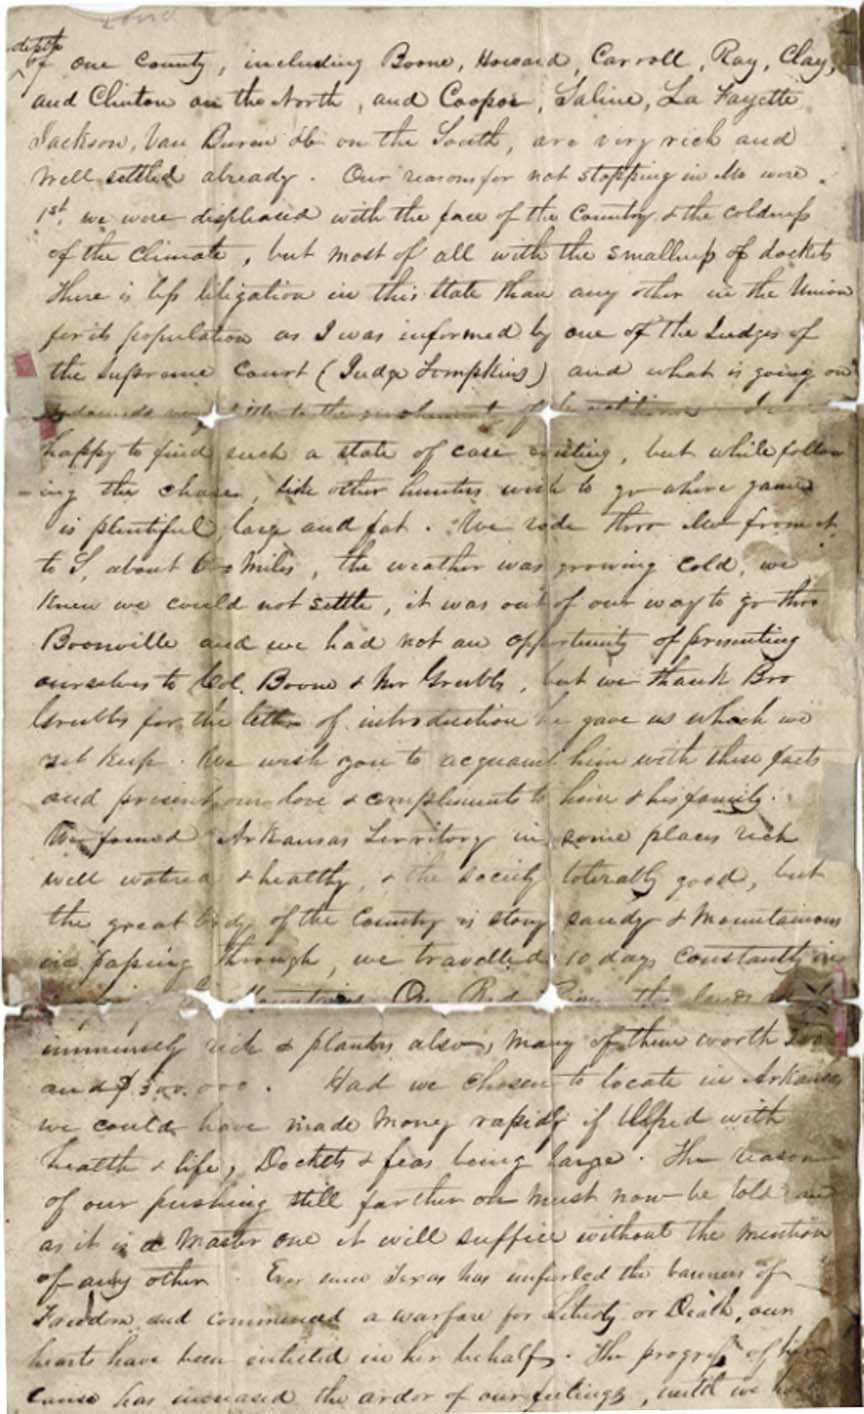 depth
of one County, including Boone, Howard, Carroll, Ray, Clay,
and Clinton on the North, and Cooper, Saline, La Fayette
Jackson, Van Buren &c on the South, are very rich and
well settled already. Our reasons for not stopping in Mo were.
1st. we were displeased with the face of the Country & the coldness
of the Climate, but most of all with the smallness of dockets
There is less litigation in this state than any other in the Union
for its population as I was informed by one of the Judges of
the Supreme Court (Judge Tompkins) and what is going on
happy to find such a state of case existing, but while follow
ing the chase, like other hunters wish to go where game
is plentiful, large and fat. We rode thro Mo from N.
to S, about 600 miles, the weather was growing cold, we
knew we could not settle, it was out of our way to go thro
Boonville and we had not an opportunity of presenting
ourselves to Col. Boone & Mr Grubbs, but we thank Bro
Grubbs for the letter of introduction he gave us which we
yet keep. We wish you to acquaint him with these facts
and present our love & compliments to him & his family.
We found Arkansas Territory in some places rich
well watered & healthy, & the society tolerably good, but
the great body of the Country is stony sandy & Mountainous
in passing through, we travelled 10 days constantly in
Mountains. On Red River the lands
immensely rich & planters also, many of them worth
and $500.000. Had we chosen to locate in Arkansas
we could have made Money rapidly if blessed with
health & life, Dockets & fees being large. The reason
of our pushing still farther on must now be told and
as it is a Master one it will suffice without the mention
of any other. Ever since Texas has unfurled the banners of
Freedom, and commenced a warfare for Liberty or Death, our
hearts have been enlisted in her behalf. The progress of her
cause has increased the ardor of our feelings, until we have